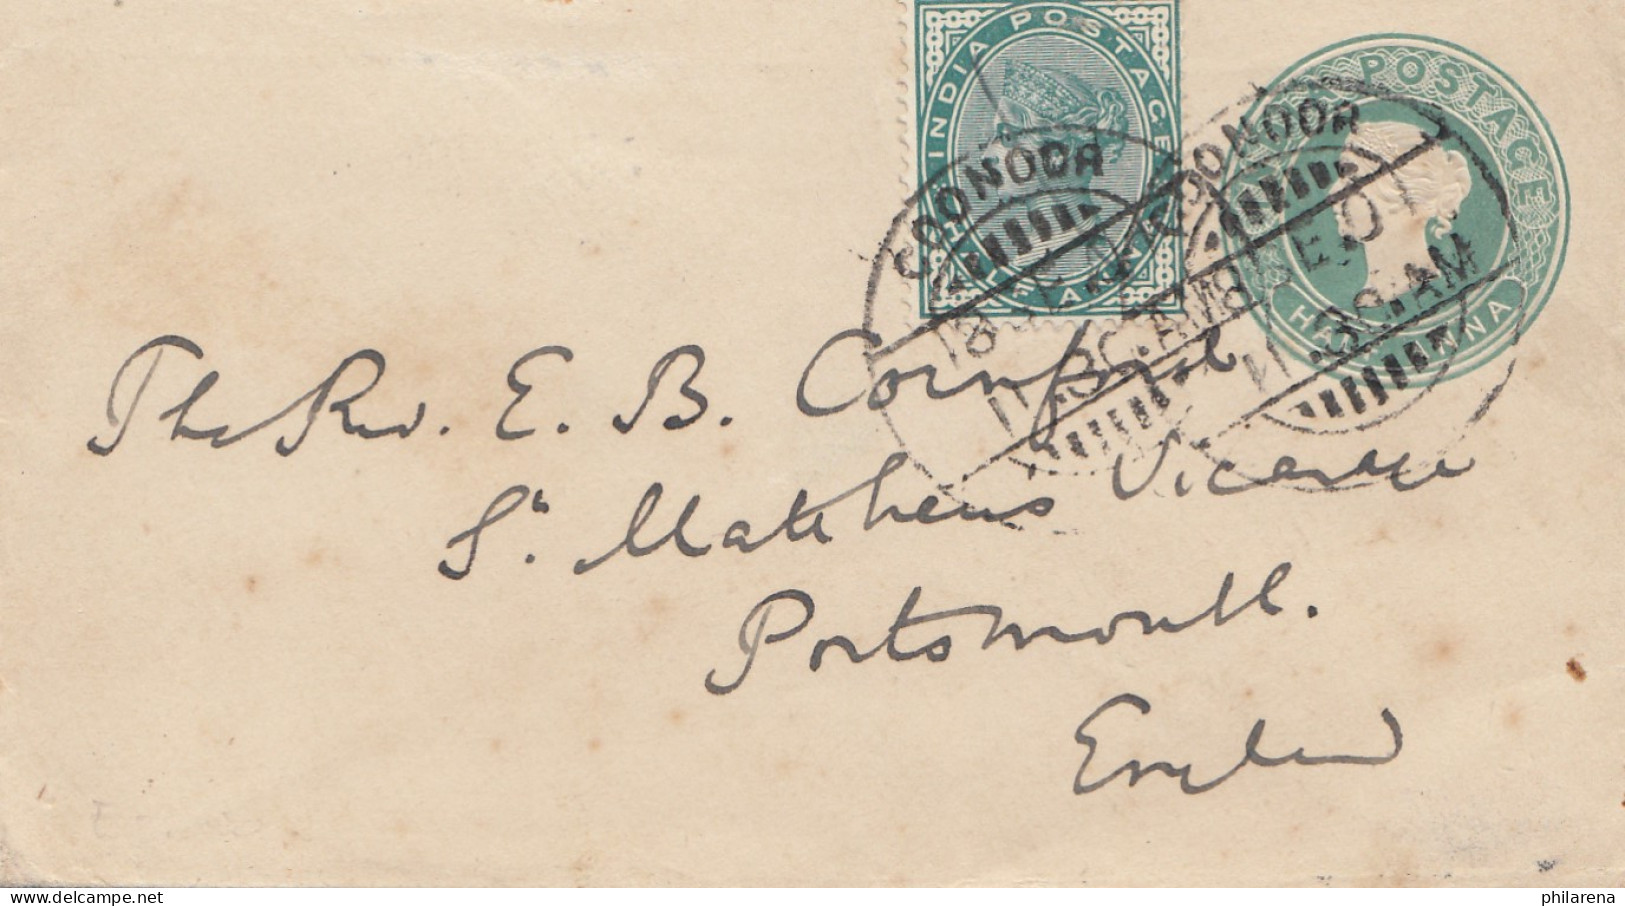 INDIA POSTAGE
POSTAGE
HALF ANNA
COONOOR
COONOOR
11.30.AM
11.30.AM
The Rev. E. B. Cornford
St. Matthews Vicarage
Portsmouth.
England
philarena